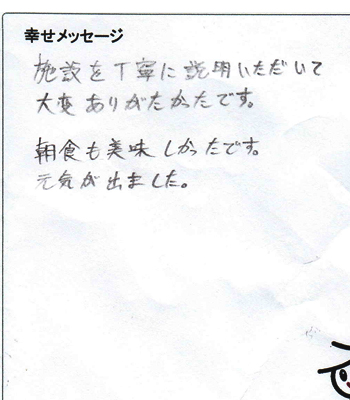 幸せメッセージ
施設を丁寧に説明いただいて
大変ありがたかったです。
朝食も美味しかったです。
元気が出ました。